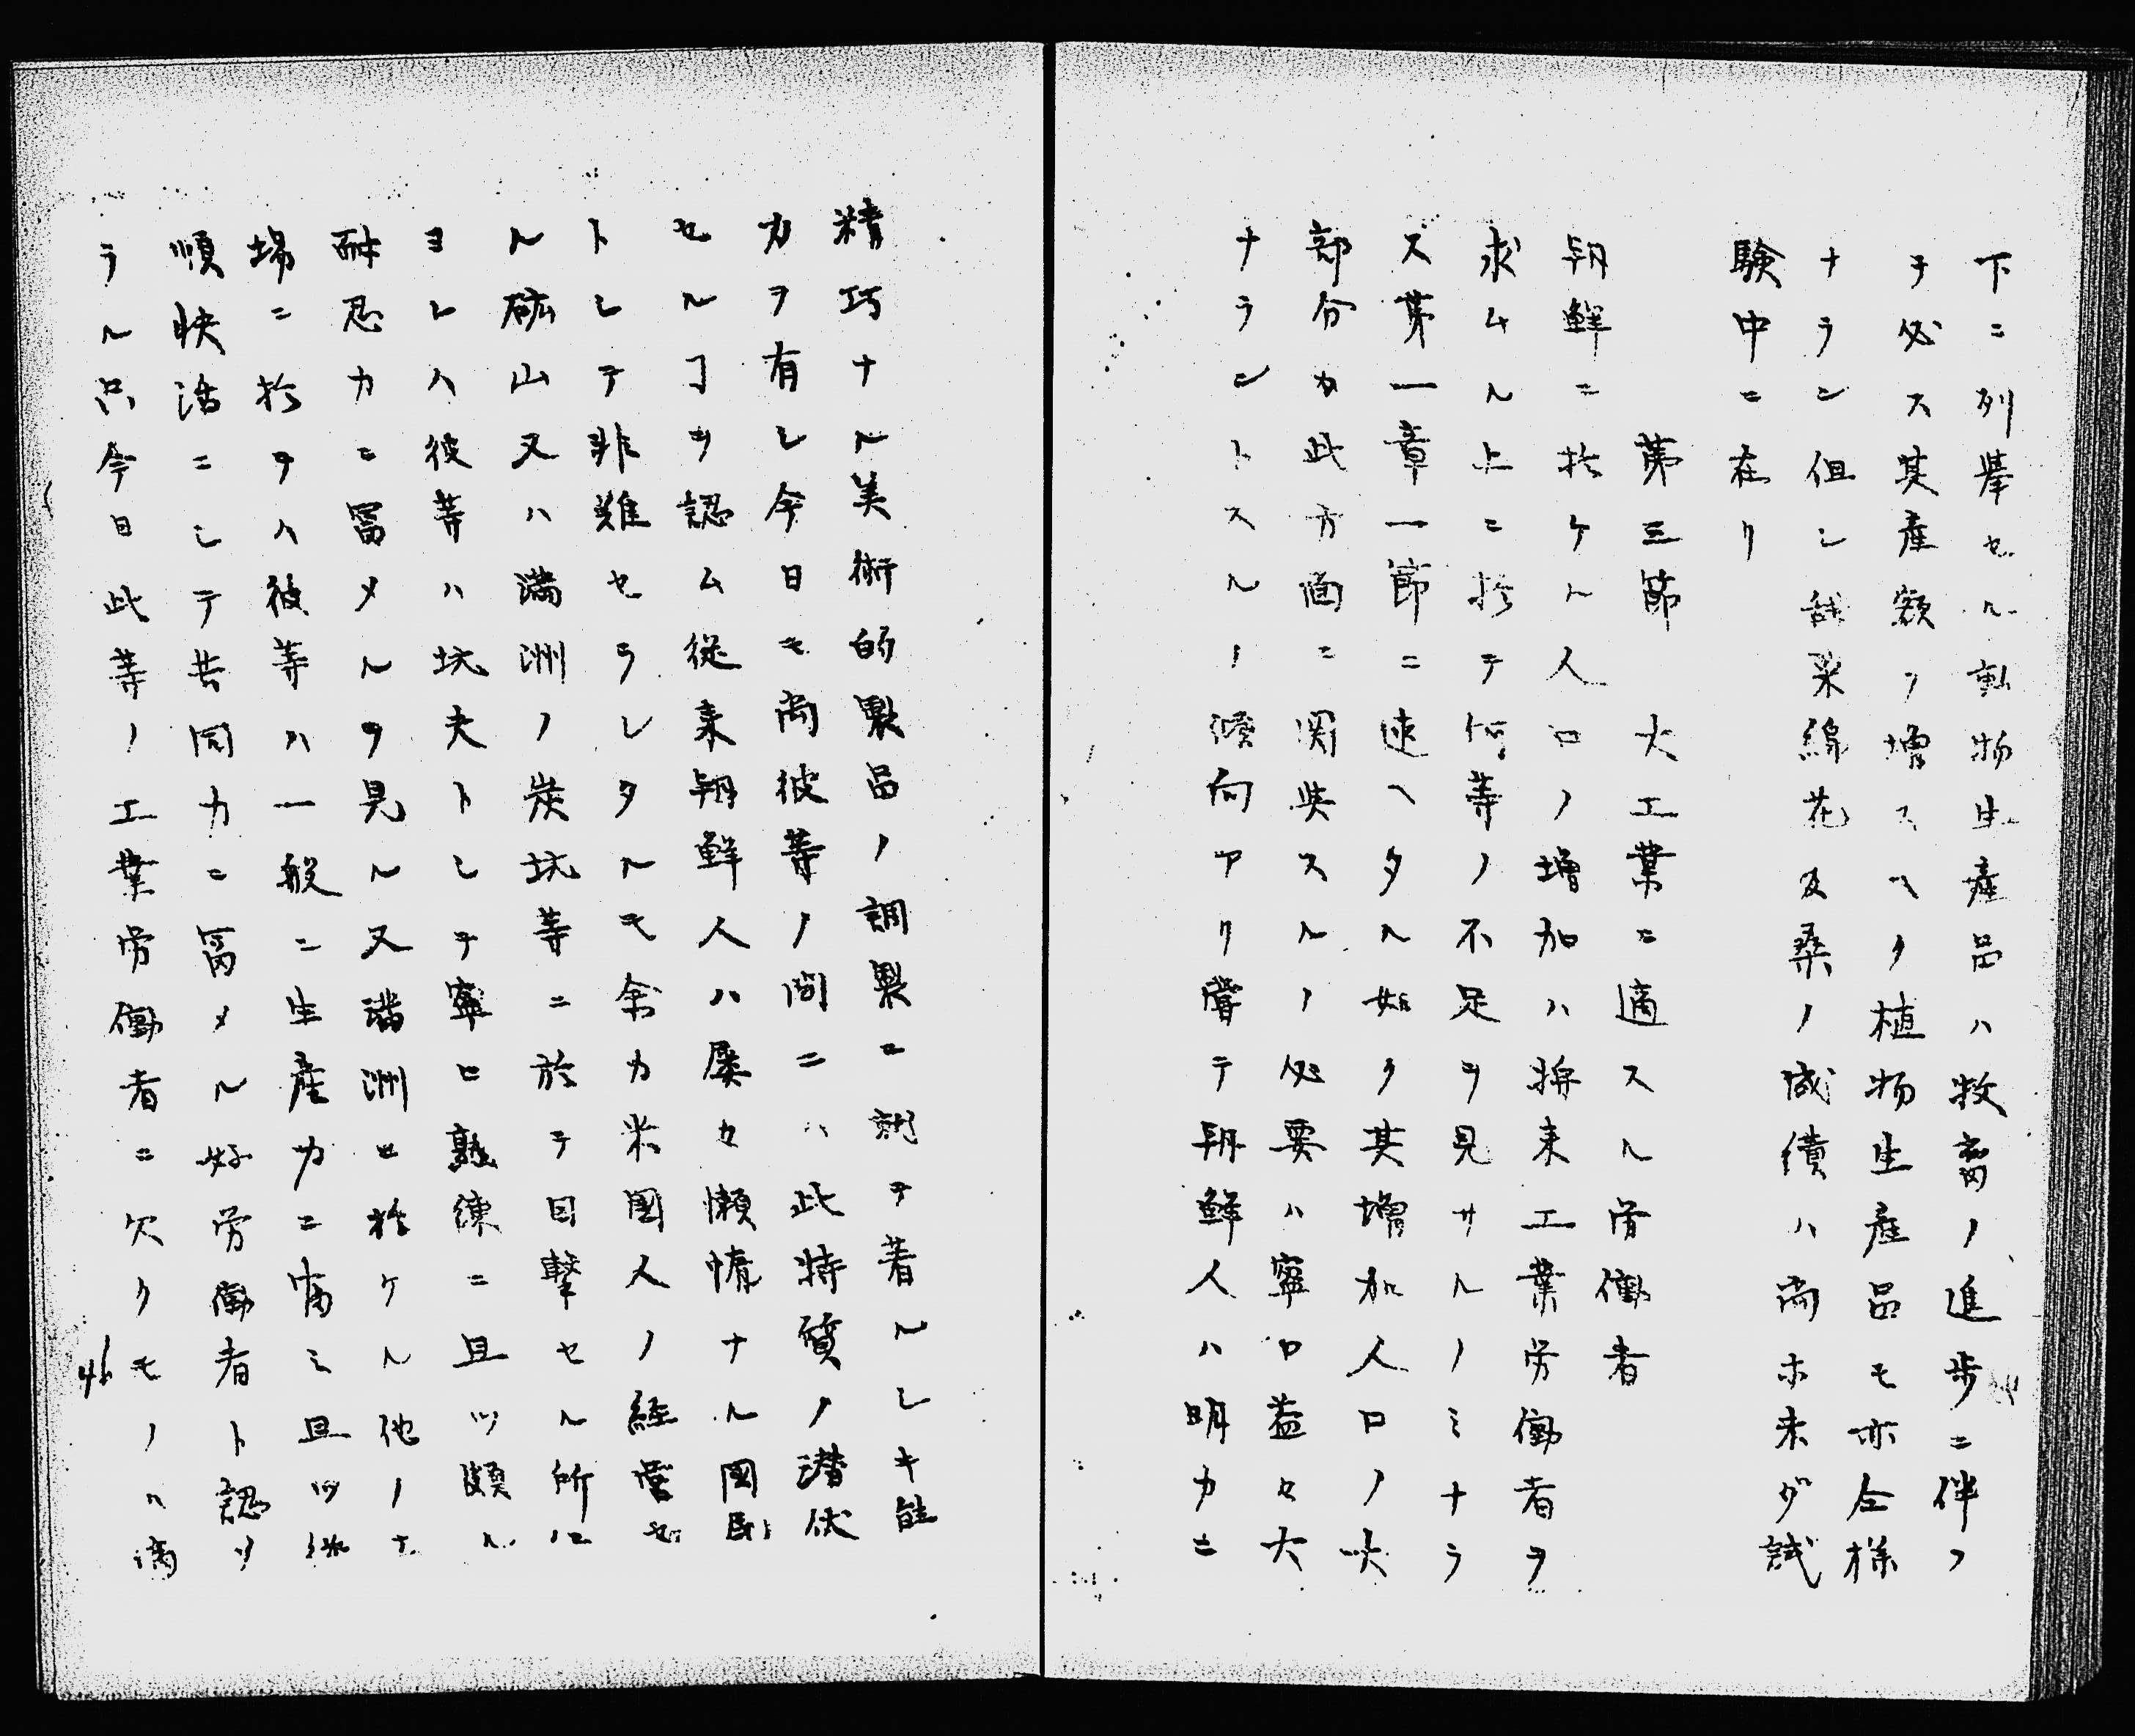 下ニ列挙セル動物生産品ハ牧畜ノ進歩ニ伴フ
テ必ス其産額ヲ増スヘク植物生産品モ亦仝様
ナラン但シ 綿花及桑ノ成績ハ尚ホ未ダ試
験中ニ在リ
第三節 大工業ニ適スル労働者
朝鮮ニ於ケル人口ノ増加ハ将来工業労働者ヲ
求ムル上ニ於テ何等ノ不足ヲ見サルノミナラ
ス第一章一節ニ述ヘタル如ク其増加人口ノ大
部分カ此方面ニ関スルノ必要ハ寧ロ益々大
ナラントスルノ傾向アリ曽テ朝鮮人ハ明カニ
精巧ナル美術的製品ノ調製ニ就テ著ルシキ能
力ヲ有シ今日モ尚彼等ノ間ニハ此特質ノ潜伏
セルヿヲ認ム従来朝鮮人ハ屡々懶惰ナル國民
トシテ非難セラレタルモ余カ米國人ノ経営セ
ル砿山又ハ満洲ノ炭坑等ニ於テ目撃セル所ニ
ヨレハ彼等ハ坑夫トシテ寧ロ熟練ニ且ツ頗ル
耐忍力ニ富メルヲ見ル又満洲ニ於ケル他ノ工
場ニ於テハ彼等ハ一般ニ生産力ニ富ミ且ツ従
順快活ニシテ共同力ニ富メル好労働者ト認メ
ラル只今日此等ノ工業労働者ニ欠クモノハ適
46